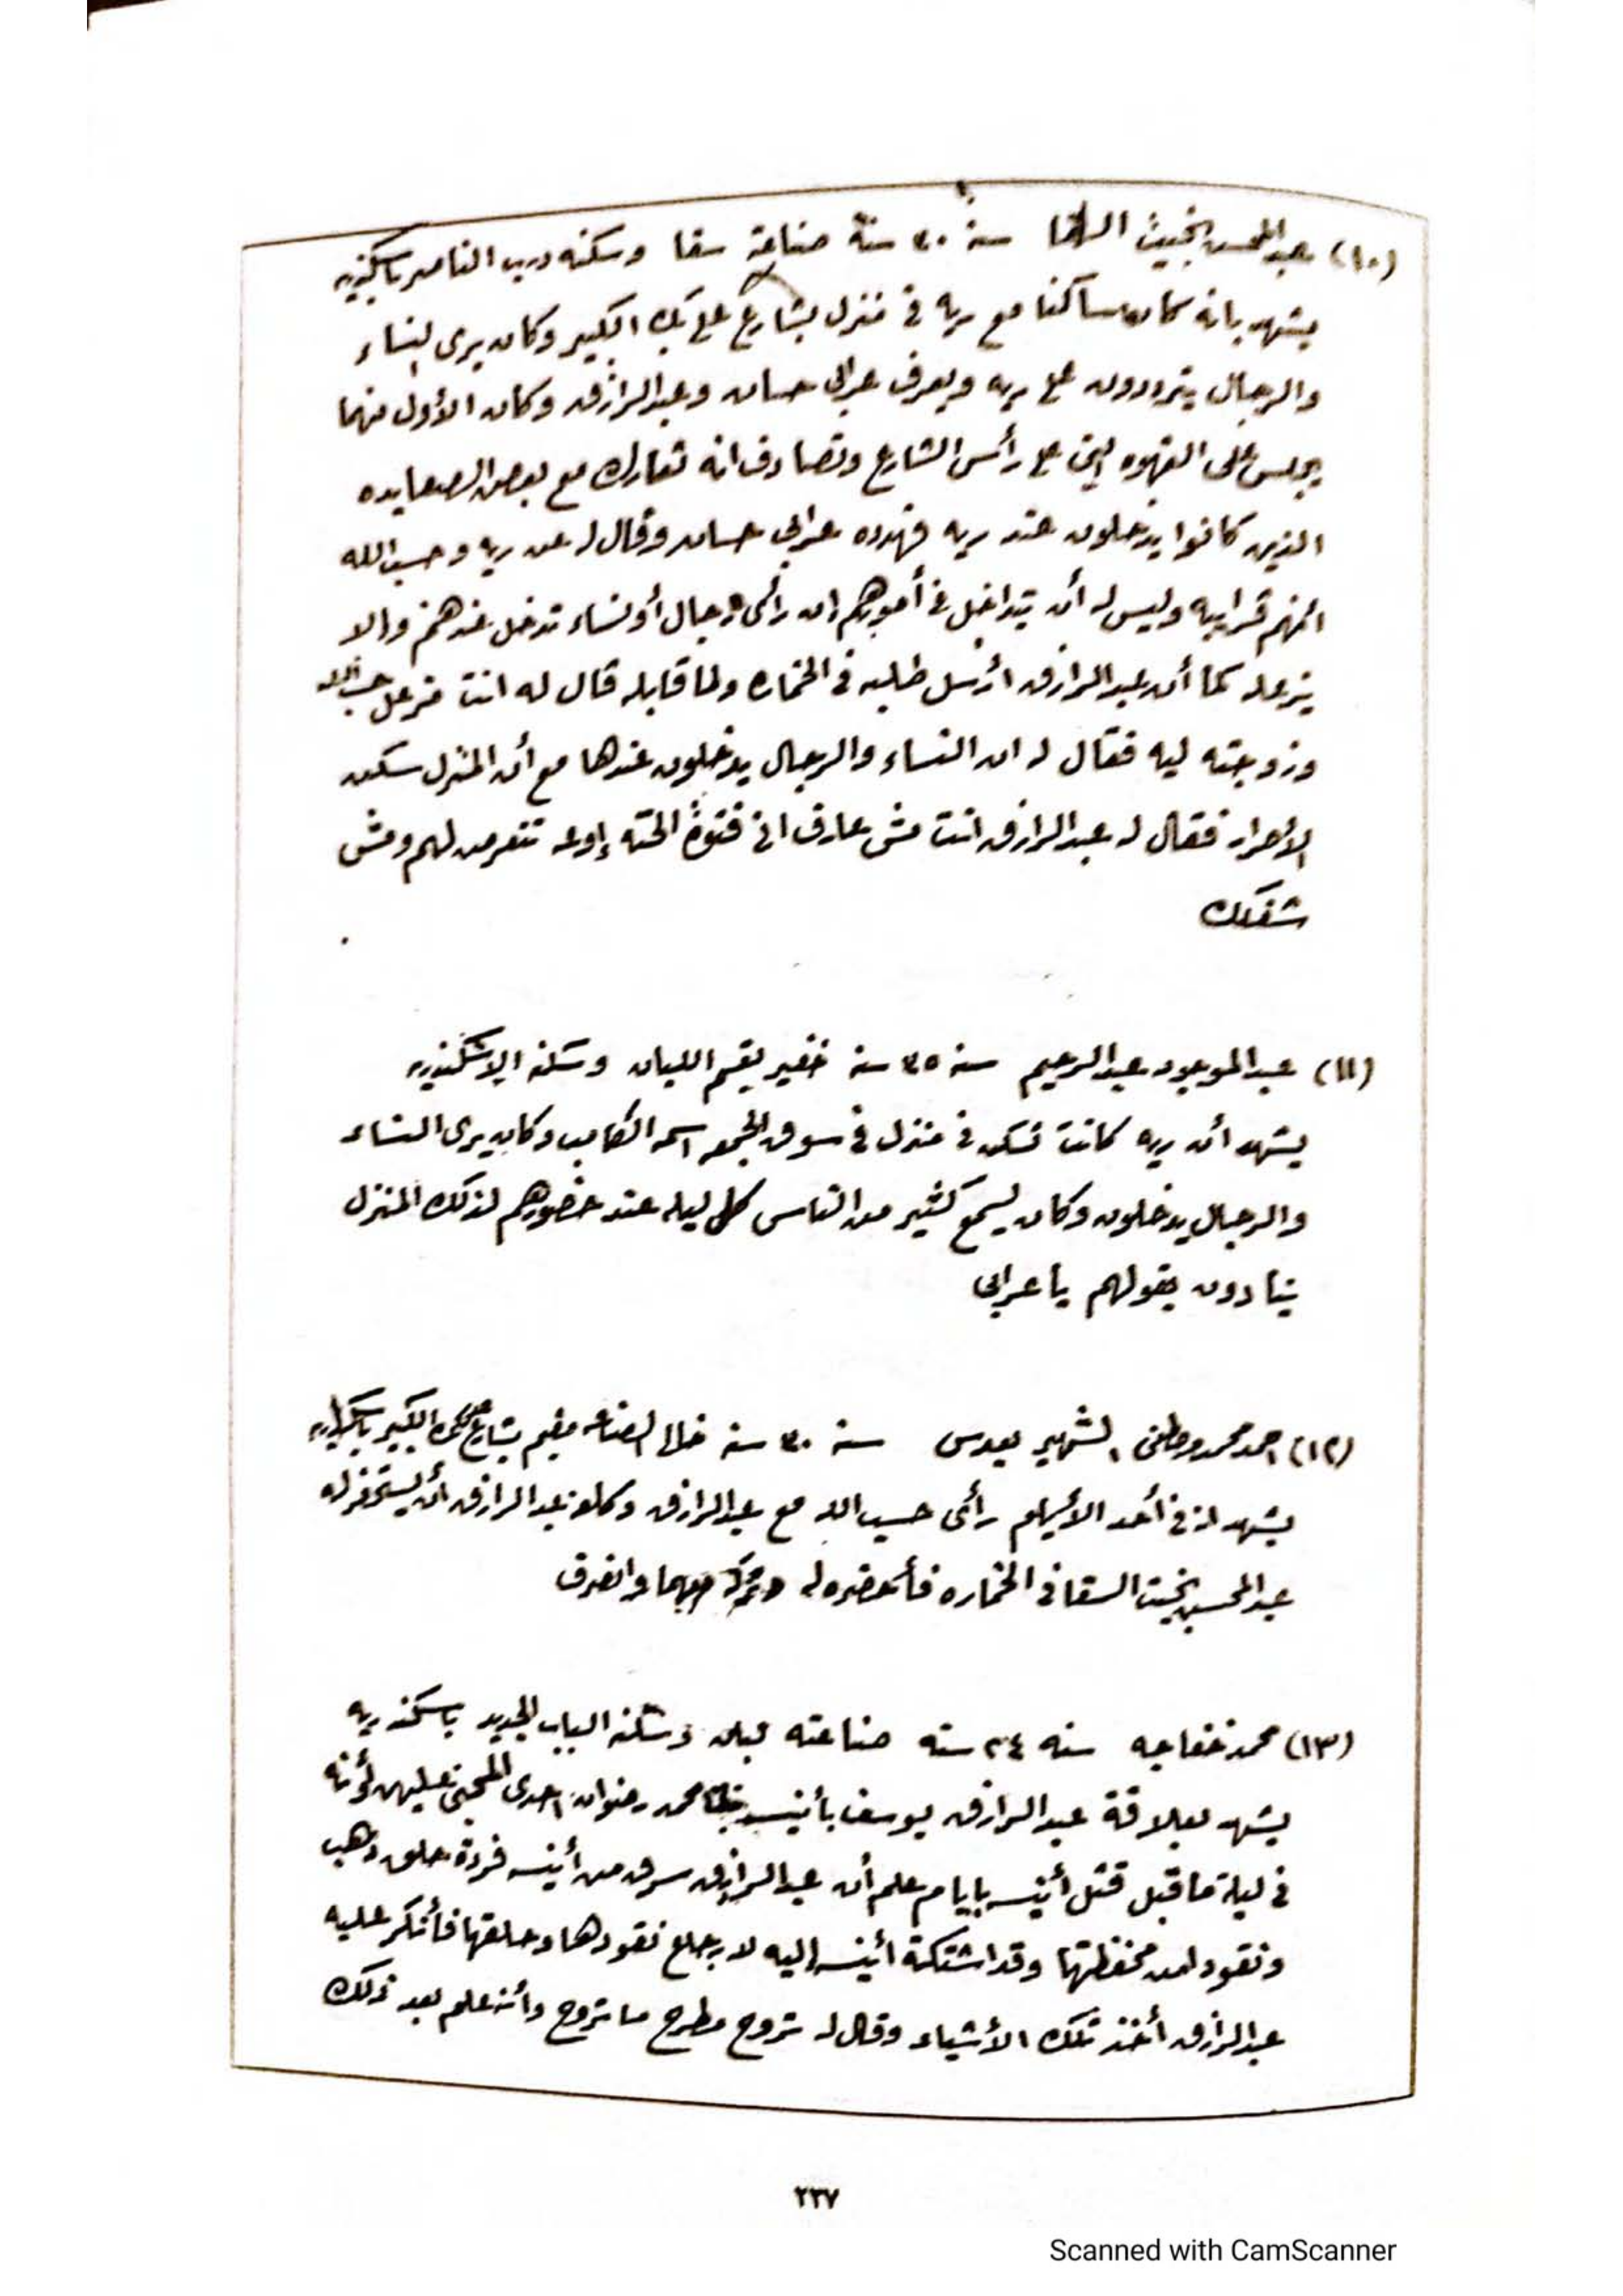 (١٠) عبد المحسن بخيت السقا سنه ٣٠ سنة صناعته سقا وسكنه درب الناصر باسكندريه
يشهد بانه كان ساكنا مع ريه في منزل بشارع علي بك الكبير وكان يرى النساء
والرجال يترددون على ريه ويعرف عرابي حسان وعبد الرازق وكان الأول منهما
يجلس على القهوه التي على رأس الشارع وتصادف انه تعارك مع بعض الصعايده
الذين كانوا يدخلون عند ريه فهدده عرابي حسان وقال له عن ريه وحسب الله
انهم قرايبه وليس له أن يتداخل في أمورهم ان رأى رجال أو نساء تدخل عندهم والا
يزعله كما أن عبد الرازق ارسل طلبه في الخماره ولما قابله قال له انت مزعل حسب الله
وزوجته ليه فقال له ان النساء والرجال يدخلون عندها مع أن المنزل سكن
الأحرار فقال له عبد الرازق انت مش عارف اني فتوة الحته إوعه تتعرض لهم ومش
شغلك
(١١) عبد الموجود عبد الرحيم سنه ٣٥ سنة خفير بقسم اللبان وسكنه الاسكندريه
يشهد أن ريه كانت تسكن في منزل في سوق الجمعه اسمه الكامب وكان يرى النساء
والرجال يدخلون وكان يسمع كثير من الناس كل ليله عند حضورهم لذلك المنزل
ينادون بقولهم يا عرابي
(١٢) احمد محمد الشهير بعدس سنة ٣٠ سنة الصناعه مقيم بشارع علي بك الكبير باسكندريه
يشهد انه في أحد الأيام رأى حسب الله مع عبد الرازق وكلفه عبد الرازق أن يستحضر له
عبد المحسن بخيت السقا في الخماره فأحضره له وتركه معهما وانصرف
(١٣) محمد خفاجه سنه ٢٤ سنه صناعته وسكنه الباب الجديد باسكندريه
يشهد بعلاقة عبد الرازق يوسف بأنيسه محمد رضوان احدى المجني عليهن لأنه
في ليلة ما قبل قتل أنيسه بايام علم أن عبد الرازق سرق من أنيسه فردة حلق ذهب
ونقود من محفظتها وقد اشتكت أنيسه إليه لارجاع نقودها وحلقها فأنكر عليه
عبد الرازق أخذ تلك الأشياء وقال له تروح مطرح ما تروح وأنه علم بعد ذلك
٢٣٧
Scanned with CamScanner